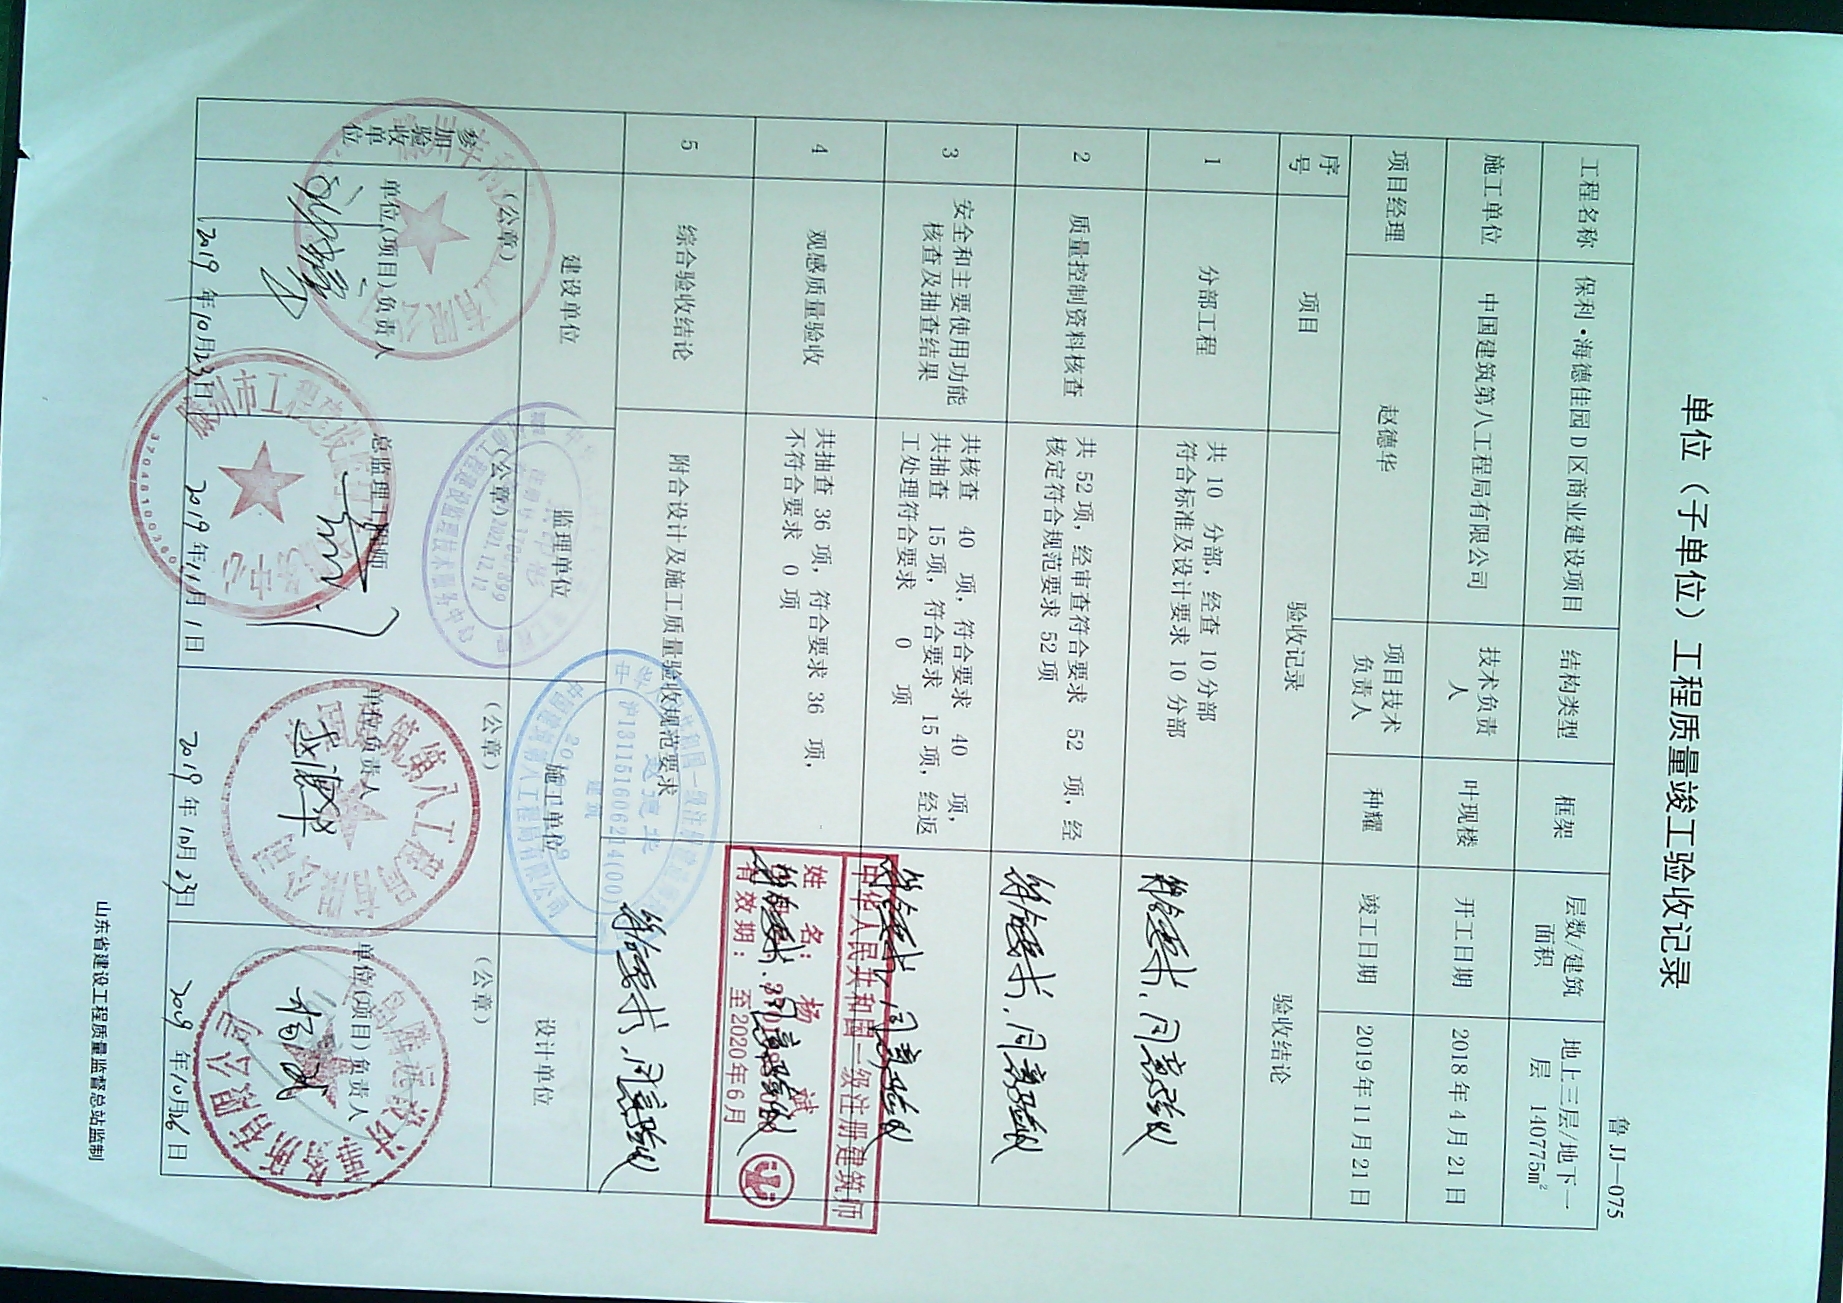 鲁 JJ—075
单位（子单位）工程质量竣工验收记录
工程名称 保利·海德佳园D区商业建设项目 结构类型 框架 层数/建筑面积 地上三层/地下一层 140775m²
施工单位 中国建筑第八工程局有限公司 技术负责人 叶现楼 开工日期 2018年4月21日
项目经理 赵德华 项目技术负责人 种耀 竣工日期 2019年11月21日
序号 项目 验收记录 验收结论
1 分部工程 共 10 分部，经查 10 分部
符合标准及设计要求 10 分部
符合要求，同意验收
2 质量控制资料核查 共 52 项，经审查符合要求 52 项，经
核定符合规范要求 52 项
符合要求，同意验收
3 安全和主要使用功能
核查及抽查结果
共核查 40 项，符合要求 40 项，
共抽查 15 项，符合要求 15 项，经返
工处理符合要求 0 项
符合要求，同意验收
4 观感质量验收 共抽查 36 项，符合要求 36 项，
不符合要求 0 项
符合要求，同意验收
中华人民共和国一级注册建筑师
姓 名：杨 斌
有效期：至2020年6月
5 综合验收结论 附合设计及施工质量验收规范要求
符合要求，同意验收
参加验收单位
建设单位 监理单位 施工单位 设计单位
（公章） （公章） （公章） （公章）
单位(项目)负责人 总监理工程师 单位负责人 单位(项目)负责人
赵德华 杨斌
2019年10月23日 2019年11月1日 2019年10月23日 2019年10月26日
滕州市工程建设监理技术服务中心
2021.12.12
中国建筑第八工程局有限公司
中华人民共和国一级注册建造师
赵德华
沪131151606214(00)
建筑
山东省建设工程质量监督总站监制